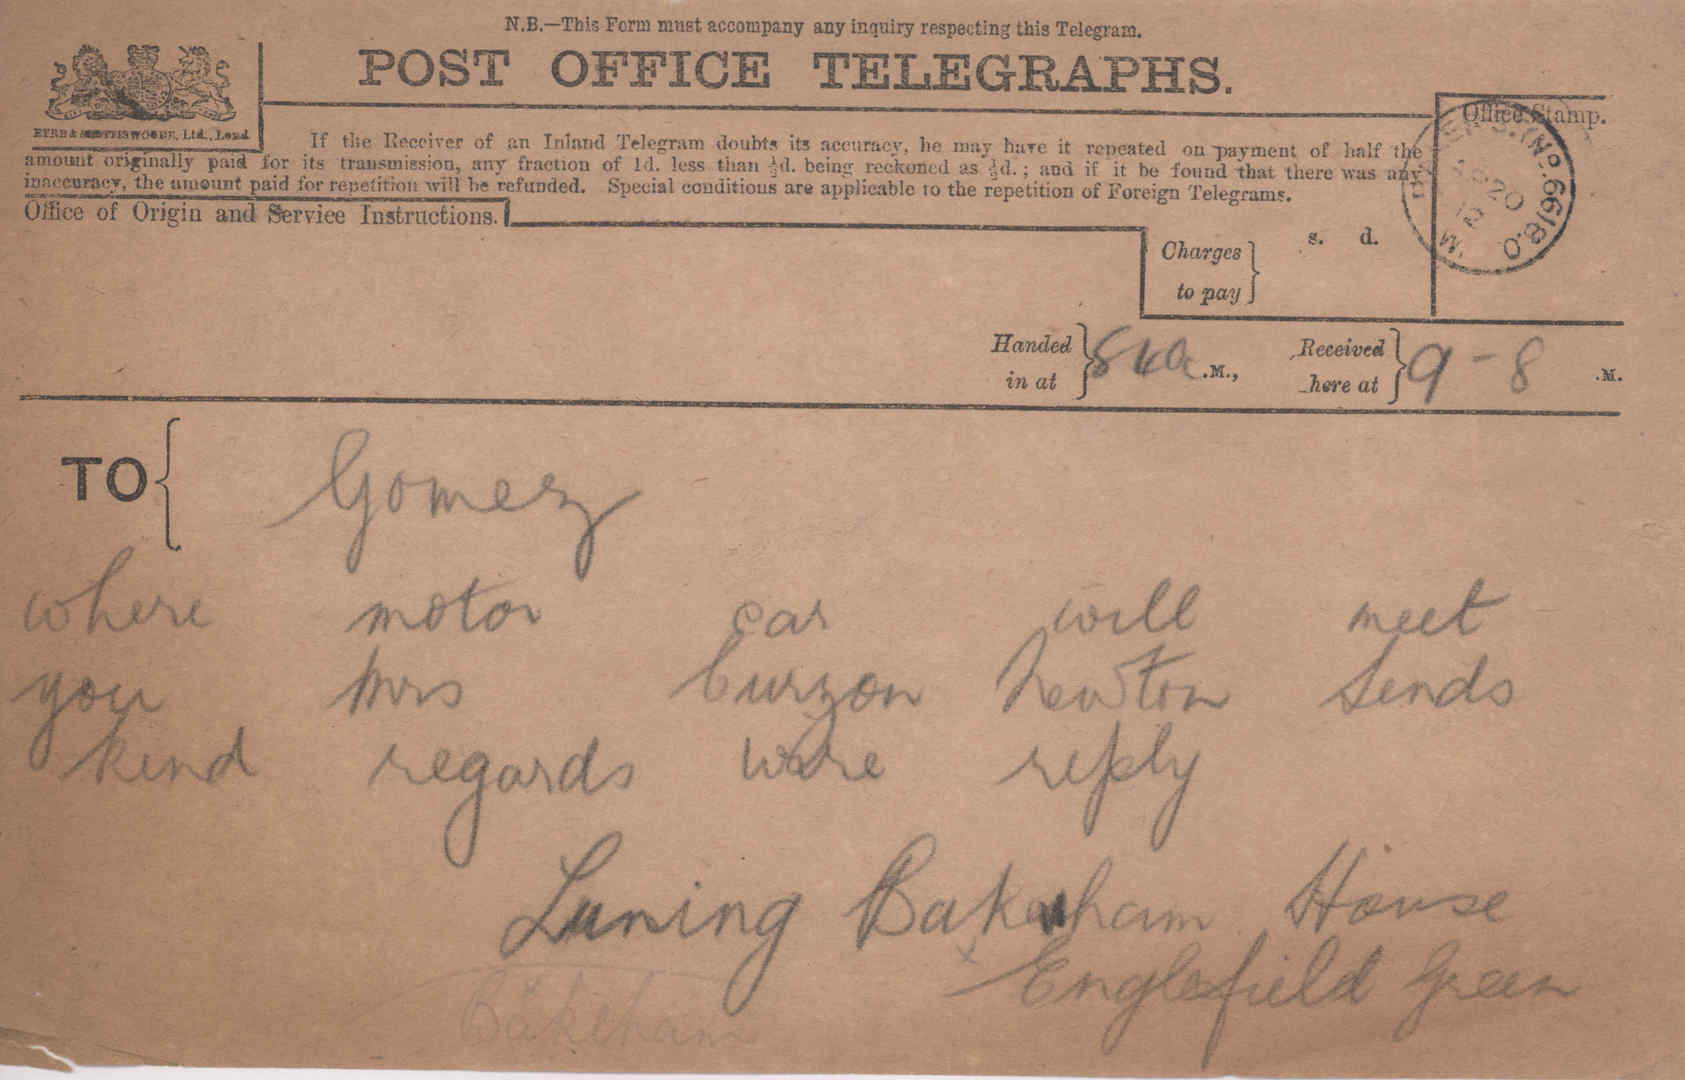 N.B.—This Form must accompany any inquiry respecting this Telegram.
POST OFFICE TELEGRAPHS.
EYRE & SPOTTISWOODE, Ltd., Lond.
Office Stamp.
If the Receiver of an Inland Telegram doubts its accuracy, he may have it repeated on payment of half the
amount originally paid for its transmission, any fraction of 1d. less than ½d. being reckoned as ½d.; and if it be found that there was any
inaccuracy, the amount paid for repetition will be refunded. Special conditions are applicable to the repetition of Foreign Telegrams.
(No. 66/8.O
20
Office of Origin and Service Instructions.
Charges to pay } s. d.
Handed in at } .M.,
Received here at } 9-8 .M.
TO { Gomez
where motor car will meet
you Mrs Curzon Newton sends
kind regards wire reply
Luning Bakeham House
Englefield Green
Bakeham